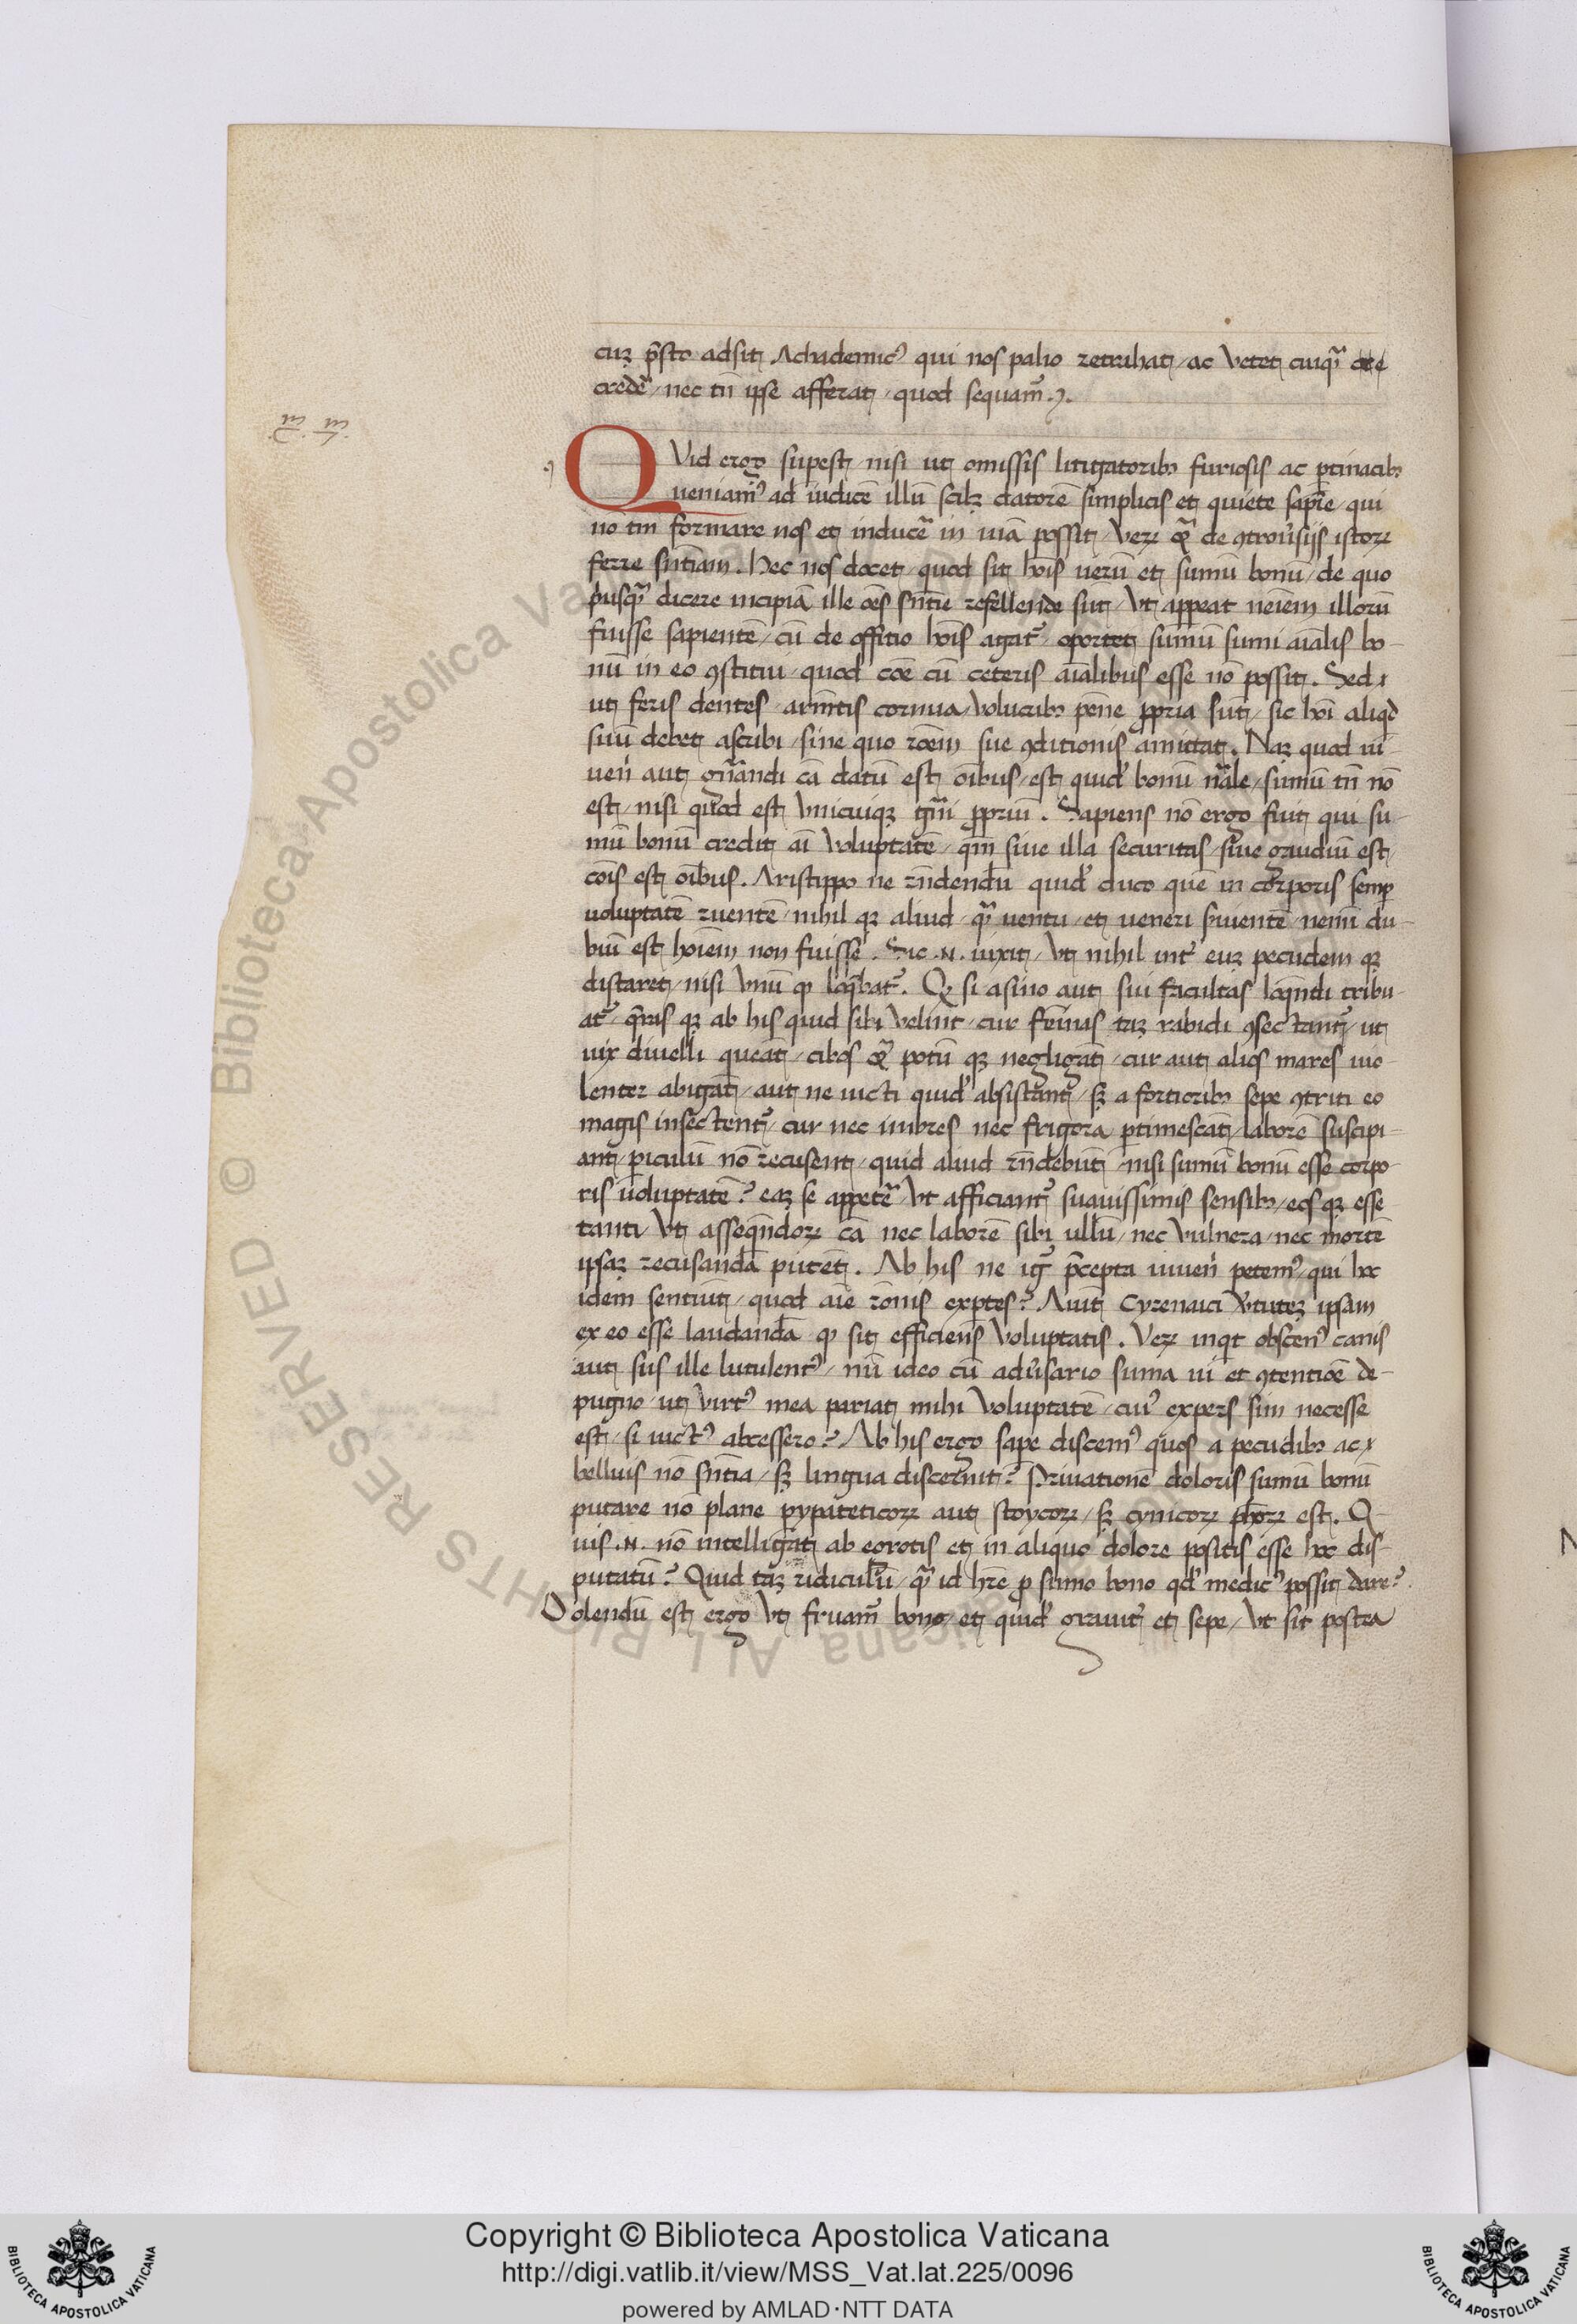 cuꝫ p̄sto adsit Achademicꝰ qui nos palio retrahat / ac vetet cuiqȝ̃
credẽ / nec tñ ipse afferat / quod sequam̃.
QVid ergo supest / nisi ut omissis litigatoribꝫ furiosis ac ꝑtinacibꝫ
ueniamꝰ ad iudicẽ illũ scilꝫ datorẽ simplicis et quiete sapīe / qui
nõ tm̃ formare nos et inducẽ in uiã possit / Veꝝ de ꝯtrou̕sijs istoꝝ
ferre snĩam. Hec nos docet / quod sit hoĩs uerũ et sumũ bonũ / de quo
priusqȝ̃ dicere incipiã ille oẽs snĩe refellende sũt / Vt appeat neiẽm illorũ
fuisse sapientẽ / cũ de offitio hoĩs agat̃ / oportet sumũ sumi aĩalis bo-
nũ in eo ꝯstitui / quod coẽ cũ ceteris aĩalibus esse nõ possit. Sed
ut feris dentes / armẽtis cornua / volucribꝫ penne ꝓpria sũt / sic hoĩ aliqd
suũ debet ascribi / sine quo rõem sue ꝯditionis amittat. Naꝫ quod ui-
uendi aut gñandi cã datũ est oĩbus / est quid̕ bonũ nãle / sumũ tñ nõ
est / nisi quod est vnicuiqꝫ gñi ꝓpriũ. Sapiens nõ ergo fuit qui su-
mũ bonũ credit aĩ voluptatẽ / qm̃ siue illa securitas / siue gaudiũ est /
cõis est oĩbus. Aristippo ne rñdendũ quid̕ duco quẽ in corporis semꝑ
uoluptatẽ ruentẽ / nihil qꝫ aliud / qȝ̃ uentri / et ueneri seruientẽ / nemi du-
biũ est hoiẽm non fuisse. Sic .N. uixit / Vt nihil int̕ euꝫ pecudem qꝫ
distaret / nisi vnũ ꝙ loq̃bat̃. Ꝙ si asino aut sui facultas loq̃ndi tribu-
at̃ / q̃ras qꝫ ab his quid sibi velint / cur fẽinas taꝫ rabidi ꝯsectant̃ / ut
uix diuelli queãt / cibos potũ qꝫ negligãt / cur aut alios mares uio-
lenter abigãt / aut ne uicti quid̕ absistant / sꝫ a fortioribꝫ sepe ꝯtriti eo
magis insectent̃ / cur nec imbres nec frigora ꝑtimescãt / laborẽ suscipi-
ant / periculũ nõ recusent / quid aliud rñdebũt / nisi sumũ bonũ esse corpo-
ris uoluptatẽ? eaꝫ se appetẽ / Vt afficiant̃ suauissimis sensibꝫ / eos qꝫ esse
tanti / Vt asseq̃ndoꝝ cã nec laborẽ sibi ullũ / nec vulnera / nec mortẽ
ipsaꝫ recusandã putẽt. Ab his ne ig̃ p̄cepta uiuendi petemꝰ / qui hoc
idem sentiũt / quod aĩe rõnis exꝑtes? Aiũt Cyrenaici v̕tuteꝫ ipsam
ex eo esse laudandã ꝙ sit efficiens voluptatis. Veꝝ inquit obscenꝰ canis
aut sus ille lutulentꝰ / nũ ideo cũ adu̕sario suma ui et ꝯtentiõe de-
pugno / ut virtꝰ mea pariat mihi voluptatẽ / cuiꝰ expers sim necesse
est / si uictꝰ abcessero? Ab his ergo sapẽ discemꝰ quos a pecudibꝫ ac
belluis nõ snĩa / sꝫ lingua discernit? Priuationẽ doloris sumũ bonũ
putare nõ plane pypateticoꝝ aut stoycoꝝ / sꝫ cynicoꝝ ph̃oꝝ est. Q-
uis .N. nõ intelligat ab egrotis et in aliquo dolore positis esse hoc dis-
putatũ? Quid tãꝫ ridiculũ / qȝ̃ id hr̃e ꝓ sumo bono qd̕ medicꝰ possit dare?
Dolendũ est ergo vt fruam̃ bono / et quid̕ grauit̕ et sepe / Vt sit postea
Copyright © Biblioteca Apostolica Vaticana
http://digi.vatlib.it/view/MSS_Vat.lat.225/0096
powered by AMLAD·NTT DATA
BIBLIOTECA APOSTOLICA VATICANA
BIBLIOTECA APOSTOLICA VATICANA